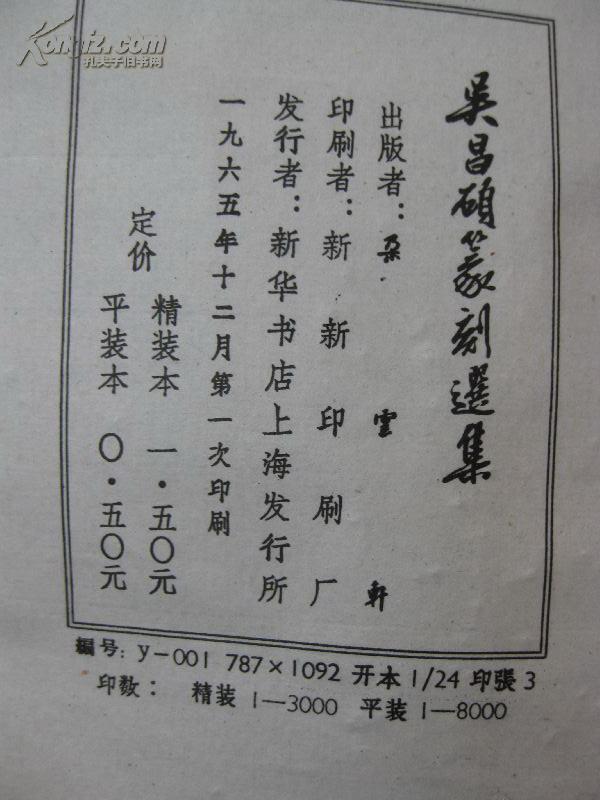 Kongfz.com
孔夫子旧书网
吴昌碩篆刻選集
出版者：朶雲軒
印刷者：新新印刷厂
发行者：新华书店上海发行所
一九六五年十二月第一次印刷
定价
精装本 一·五〇元
平装本 〇·五〇元
編号：y—001 787×1092 开本 1/24 印張 3
印数： 精装 1—3000 平装 1—8000